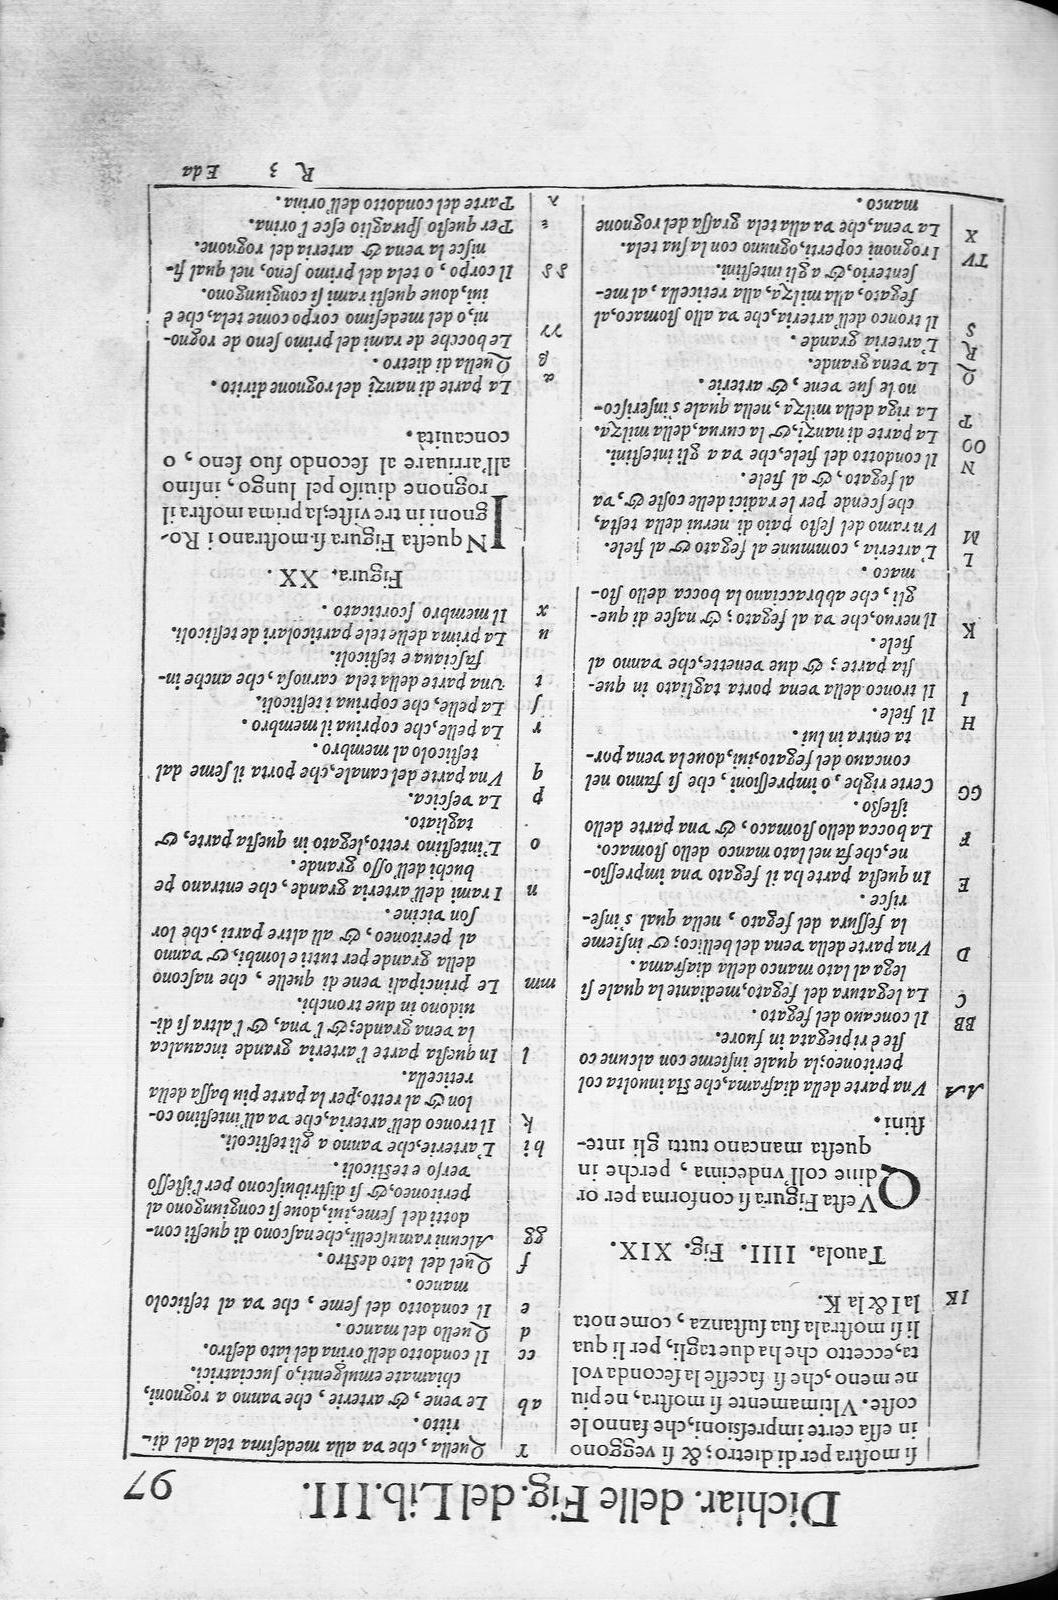 Dichiar. delle Fig. del Lib. III. 97
si mostra per di dietro; & si veggono
in essa certe impressioni, che fanno le
coste. Vltimamente si mostra, ne piu
ne meno, che si facesse la seconda vol
ta, eccetto che ha due tagli, per li qua
li si mostra la sua sustanza, come nota
IK la I & la K.
Tauola. IIII. Fig. XIX.
QVesta Figura si conforma per or
dine coll' vndecima, perche in
questa mancano tutti gli inte-
stini.
AA Vna parte della diaframa, che sta inuolta col
peritoneo; la quale insieme con alcune co
ste è ripiegata in fuore.
BB Il concauo del fegato.
C La legatura del fegato, mediante la quale si
lega al lato manco della diaframa.
D Vna parte della vena del bellico; & insieme
la fessura del fegato, nella qual s'inse-
risce.
E In questa parte ha il fegato vna impressio-
ne, che fa nel lato manco dello stomaco.
F La bocca dello stomaco, & vna parte dello
istesso.
GG Certe righe, o impressioni, che si fanno nel
concauo del fegato, iui, doue la vena por-
ta entra in lui.
H Il fiele.
I Il tronco della vena porta tagliato in que-
sta parte; & due venette, che vanno al
fiele.
K Il neruo, che va al fegato; & nasce di que-
gli, che abbracciano la bocca dello sto-
maco.
L L'arteria, commune al fegato & al fiele.
M Vn ramo del sesto paio di nerui della testa,
che scende per le radici delle coste &, va
al fegato, & al fiele.
N Il condotto del fiele, che va a gli intestini.
OO La parte di nanzi, & la curua, della milza.
P La riga della milza, nella quale s'inserisco-
no le sue vene, & arterie.
Q La vena grande.
R L'arteria grande.
S Il tronco dell'arteria, che va allo stomaco, al
fegato, alla milza, alla reticella, al me-
senterio, & a gli intestini.
TV I rognoni coperti, ognuno con la sua tela.
X La vena, che va alla tela grassa del rognone
manco.
Y Quella, che va alla medesima tela del di-
ritto.
ab Le vene, & arterie, che vanno a rognoni,
chiamate emulgenti, o succiatrici.
cc Il condotto dell'orina del lato destro.
d Quello del manco.
e Il condotto del seme, che va al testicolo
manco.
f Quel del lato destro.
gg Alcuni ramuscelli, che nascono di questi con-
dotti del seme, iui, doue si congiungono al
peritoneo, & si distribuiscono per l'istesso
verso e testicoli.
hi L'arterie, che vanno a gli testicoli.
k Il tronco dell'arteria, che va all'intestino co-
lon & al retto, per la parte piu bassa della
reticella.
l In questa parte l'arteria grande incaualca
la vena grande; & l'vna, & l'altra si di-
uidono in due tronchi.
mm Le principali vene di quelle, che nascono
della grande per tutti e lombi, & vanno
al peritoneo, & all altre parti, che lor
son vicine.
n I rami dell'arteria grande, che entrano pe
buchi dell'osso grande.
o L'intestino retto, legato in questa parte, &
tagliato.
p La vescica.
q Vna parte del canale, che porta il seme dal
testicolo al membro.
r La pelle, che copriua il membro.
ſ La pelle, che copriua i testicoli.
t Vna parte della tela carnosa, che anche in-
fasciaua e testicoli.
u La prima delle tele particolari de testicoli.
x Il membro scorticato.
Figura. XX.
IN questa Figura si mostrano i Ro-
gnoni in tre viste; la prima mostra il
rognone diuiso pel lungo, insino
all'arriuare al secondo suo seno, o
concauità.
α La parte di nanzi del rognone diritto.
β Quella di dietro.
γγ Le bocche de rami del primo seno de rogno-
ni, o del medesimo corpo come tela, che è
iui, doue questi rami si congiungono.
δδ Il corpo, o tela del primo seno, nel qual fi-
nisce la vena & arteria del rognone.
ε Per questo spiraglio esce l'orina.
Parte del condotto dell'orina.
R 3 Eda